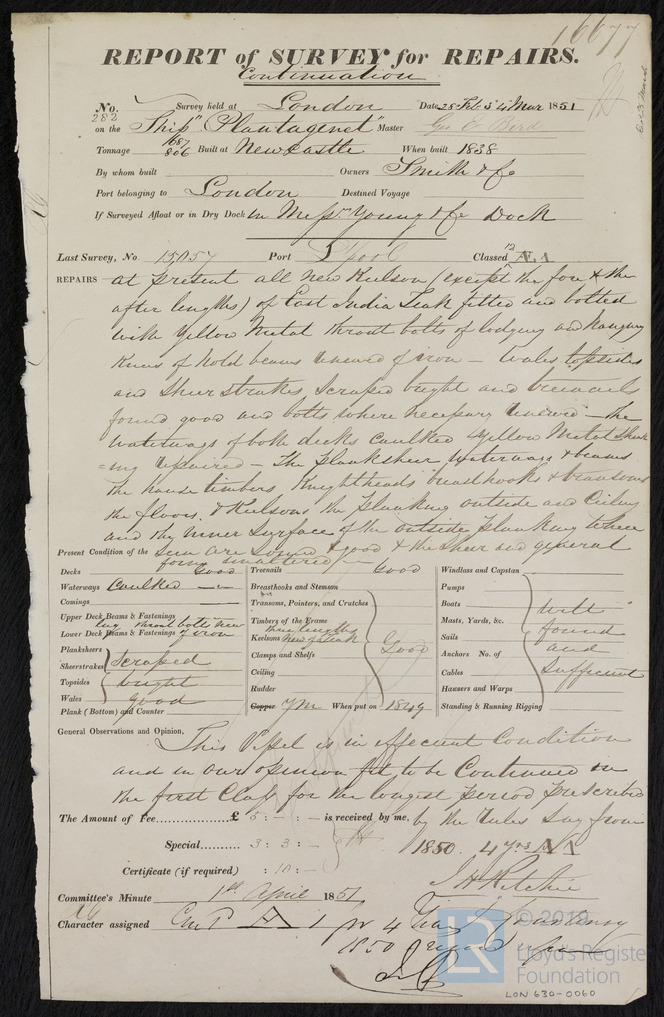 16677
REPORT of SURVEY for REPAIRS.
Continuation
No. 282 Survey held at London Date 28 Feb & 4 Mar 1851
on the Ship "Plantagenet" Master Geo E Bird
Tonnage 1687 806 Built at Newcastle When built 1838
By whom built Owners Smith & Co
Port belonging to London Destined Voyage
If Surveyed Afloat or in Dry Dock in Messrs Young & Co Dock
Last Survey, No. 15057 Port L'pool Classed 12 A.1
REPAIRS at present all new Keelson (except the fore & the
after lengths) of East India Teak fitted and bolted
with Yellow Metal throat bolts of lodging and hanging
Knees of hold beams renewed of iron — Wales topsides
and Sheerstrakes scraped bright and treenails
found good and bolts where necessary renewed — the
waterways of both decks caulked & Yellow Metal Sheath
=ing repaired — The planksheer waterways & beams
the frame timbers Knightheads breasthooks & transoms
the floors & Keelsons the planking outside and Ceiling
and the inner surface of the outside planking where
Present Condition of the seen are sound & good & the sheer and general
form unaltered —
Decks Good
Waterways Caulked
Comings
Upper Deck Beams & Fastenings
Lower Deck Beams & Fastenings throat bolts new of iron
Planksheers
Sheerstrakes scraped
Topsides bright
Wales good
Plank (Bottom) and Counter
Treenails Good
Breasthooks and Stemson
Transoms, Pointers, and Crutches
Timbers of the Frame
Keelsons lengths New of teak
Clamps and Shelfs Good
Ceiling
Rudder
Copper YM When put on 1849
Windlass and Capstan
Pumps
Boats well
Masts, Yards, &c.
Sails found
Anchors No. of and
Cables sufficient
Hausers and Warps
Standing & Running Rigging
General Observations and Opinion, This Vessel is in efficient Condition
and in our opinion fit to be Continued in
the first Class for the longest period prescribed
The Amount of Fee £ 5 : – : – is received by me, by the Rules Say from
Special 3 : 3 : – 1850. 4 yrs A1
Certificate (if required) : 10 : – J H Ritchie
Committee's Minute 1st April 1851
Character assigned A 1 for 4 Years
1850
© 2019
LR
Lloyd's Register
Foundation
LON 630-0060